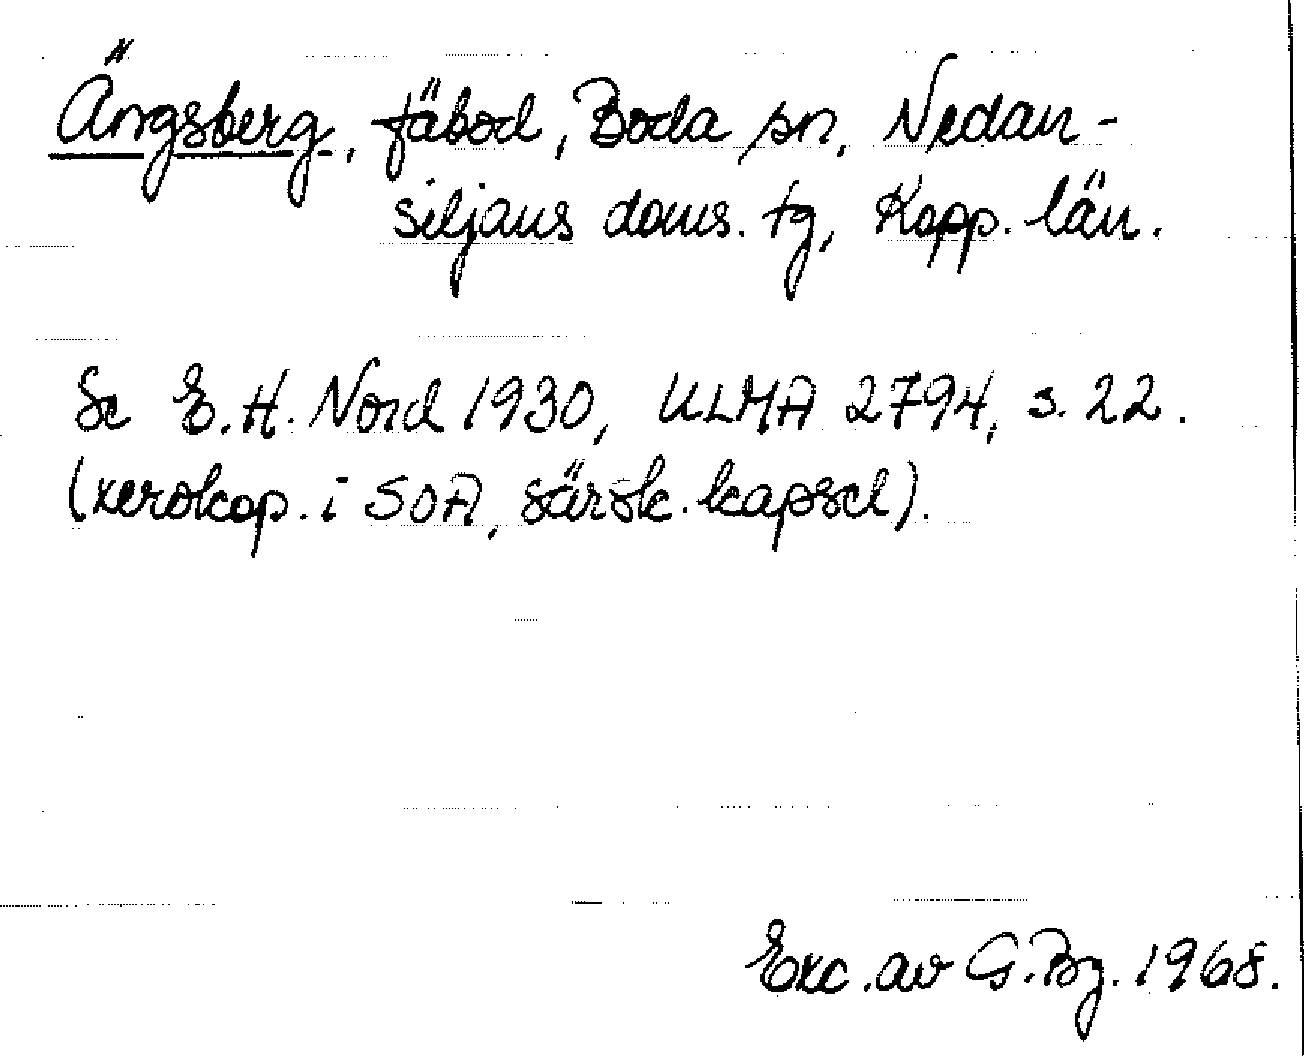 Ängsberg, fäbod, Boda sn, Nedan-
siljans doms. tg, Kopp. län.
Se E. H. Nord 1930, ULMA 2794, s. 22.
(xerokop. i SOA, särsk. kapsel).
Exc. av G. Bg. 1968.